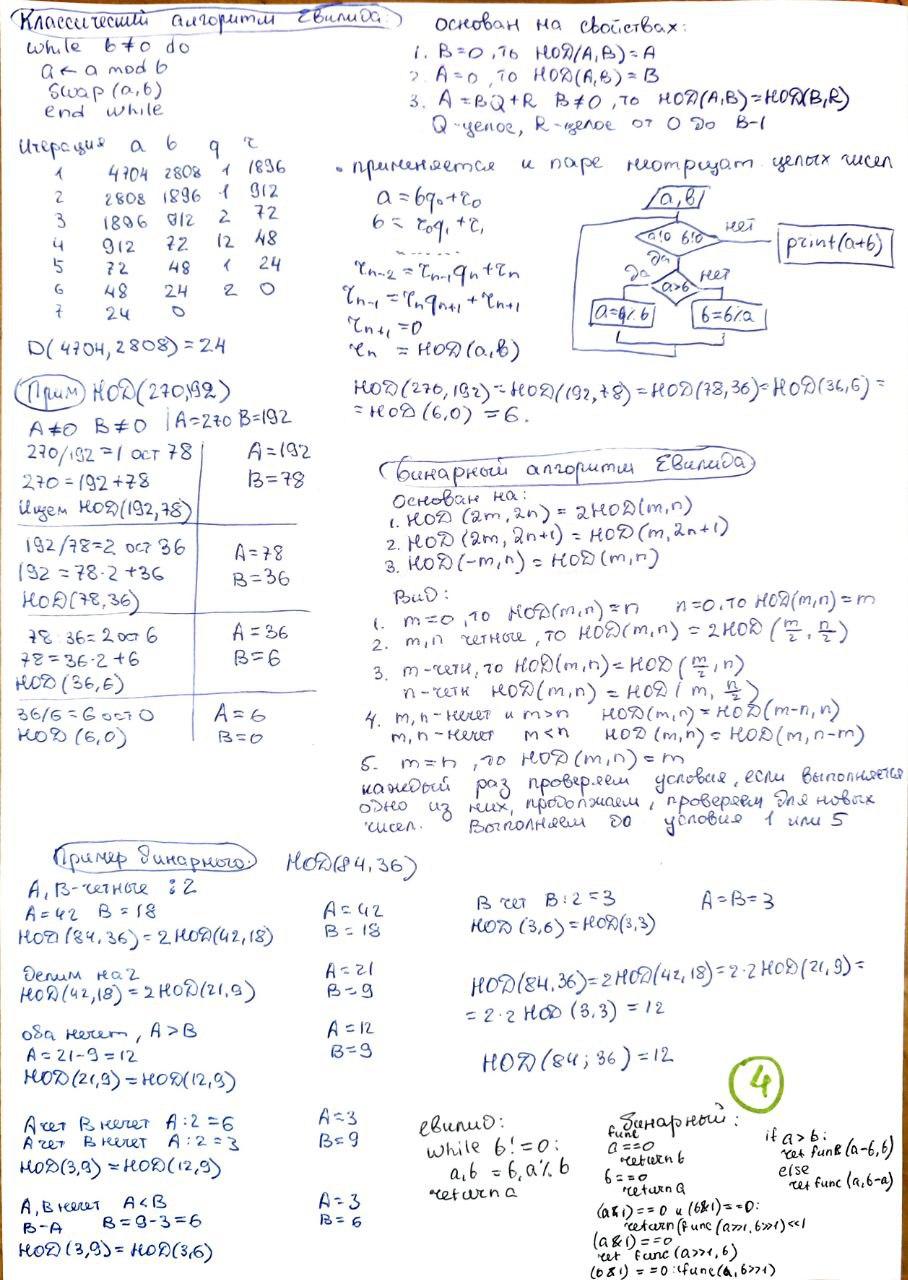 Классический алгоритм Евклида:
while b≠0 do
a ← a mod b
swap (a,b)
end while
Итерация a b q r
1 4704 2808 1 1896
2 2808 1896 1 912
3 1896 912 2 72
4 912 72 12 48
5 72 48 1 24
6 48 24 2 0
7 24 0
D(4704,2808)=24
Основан на свойствах:
1. B=0, то НОД(A,B)=A
2. A=0, то НОД(A,B)=B
3. A=BQ+R B≠0, то НОД(A,B)=НОД(B,R)
Q-целое, R-целое от 0 до B-1
• применяется к паре неотрицат. целых чисел
a=bq₀+r₀
b=r₀q₁+r₁
.......
rₙ₋₂=rₙ₋₁qₙ+rₙ
rₙ₋₁=rₙqₙ₊₁+rₙ₊₁
rₙ₊₁=0
rₙ = НОД(a,b)
a,b
a!0 b!0
нет
print(a+b)
да
да a>b нет
a=a%b b=b%a
Прим НОД(270,192)
A≠0 B≠0 | A=270 B=192
270/192=1 ост 78 A=192
270=192+78 B=78
Ищем НОД(192,78)
192/78=2 ост 36 A=78
192=78·2+36 B=36
НОД(78,36)
78:36=2 ост 6 A=36
78=36·2+6 B=6
НОД(36,6)
36/6=6 ост 0 A=6
НОД (6,0) B=0
НОД(270,192)=НОД(192,78)=НОД(78,36)=НОД(36,6)=
=НОД(6,0) =6.
Бинарный алгоритм Евклида
Основан на:
1. НОД(2m,2n)=2НОД(m,n)
2. НОД(2m,2n+1)=НОД(m,2n+1)
3. НОД(-m,n)=НОД(m,n)
Вид:
1. m=0, то НОД(m,n)=n n=0, то НОД(m,n)=m
2. m,n четные, то НОД(m,n)=2НОД(m/2, n/2)
3. m-четн, то НОД(m,n)=НОД(m/2, n)
n-четн НОД(m,n)=НОД(m, n/2)
4. m,n-нечет и m>n НОД(m,n)=НОД(m-n,n)
m,n-нечет m<n НОД(m,n)=НОД(m,n-m)
5. m=n, то НОД(m,n)=m
каждый раз проверяем условия, если выполняется
одно из них, продолжаем, проверяем для новых
чисел. Выполняем до условия 1 или 5
Пример бинарного: НОД(84,36)
A,B-четные :2
A=42 B=18 A=42
НОД(84,36)=2НОД(42,18) B=18
Делим на 2 A=21
НОД(42,18)=2НОД(21,9) B=9
оба нечет, A>B A=12
A=21-9=12 B=9
НОД(21,9)=НОД(12,9)
A чет B нечет A:2=6 A=3
A чет B нечет A:2=3 B=9
НОД(3,9)=НОД(12,9)
A,B нечет A<B A=3
B-A B=9-3=6 B=6
НОД(3,9)=НОД(3,6)
B чет B:2=3 A=B=3
НОД(3,6)=НОД(3,3)
НОД(84,36)=2НОД(42,18)=2·2НОД(21,9)=
=2·2НОД(3,3)=12
НОД(84;36)=12
4
евклид:
while b!=0:
a,b=b,a%b
return a
бинарный:
func
a==0
return b
b==0
return a
(a&1)==0 и (b&1)==0:
return(func(a>>1,b>>1)<<1
(a&1)==0
ret func(a>>1,b)
(b&1)==0: func(a,b>>1)
if a>b:
ret func(a-b,b)
else
ret func(a,b-a)